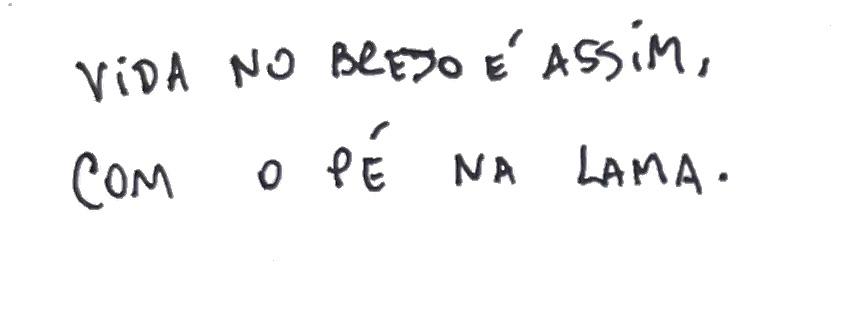 VIDA NO BREJO É ASSIM,
COM O PÉ NA LAMA.